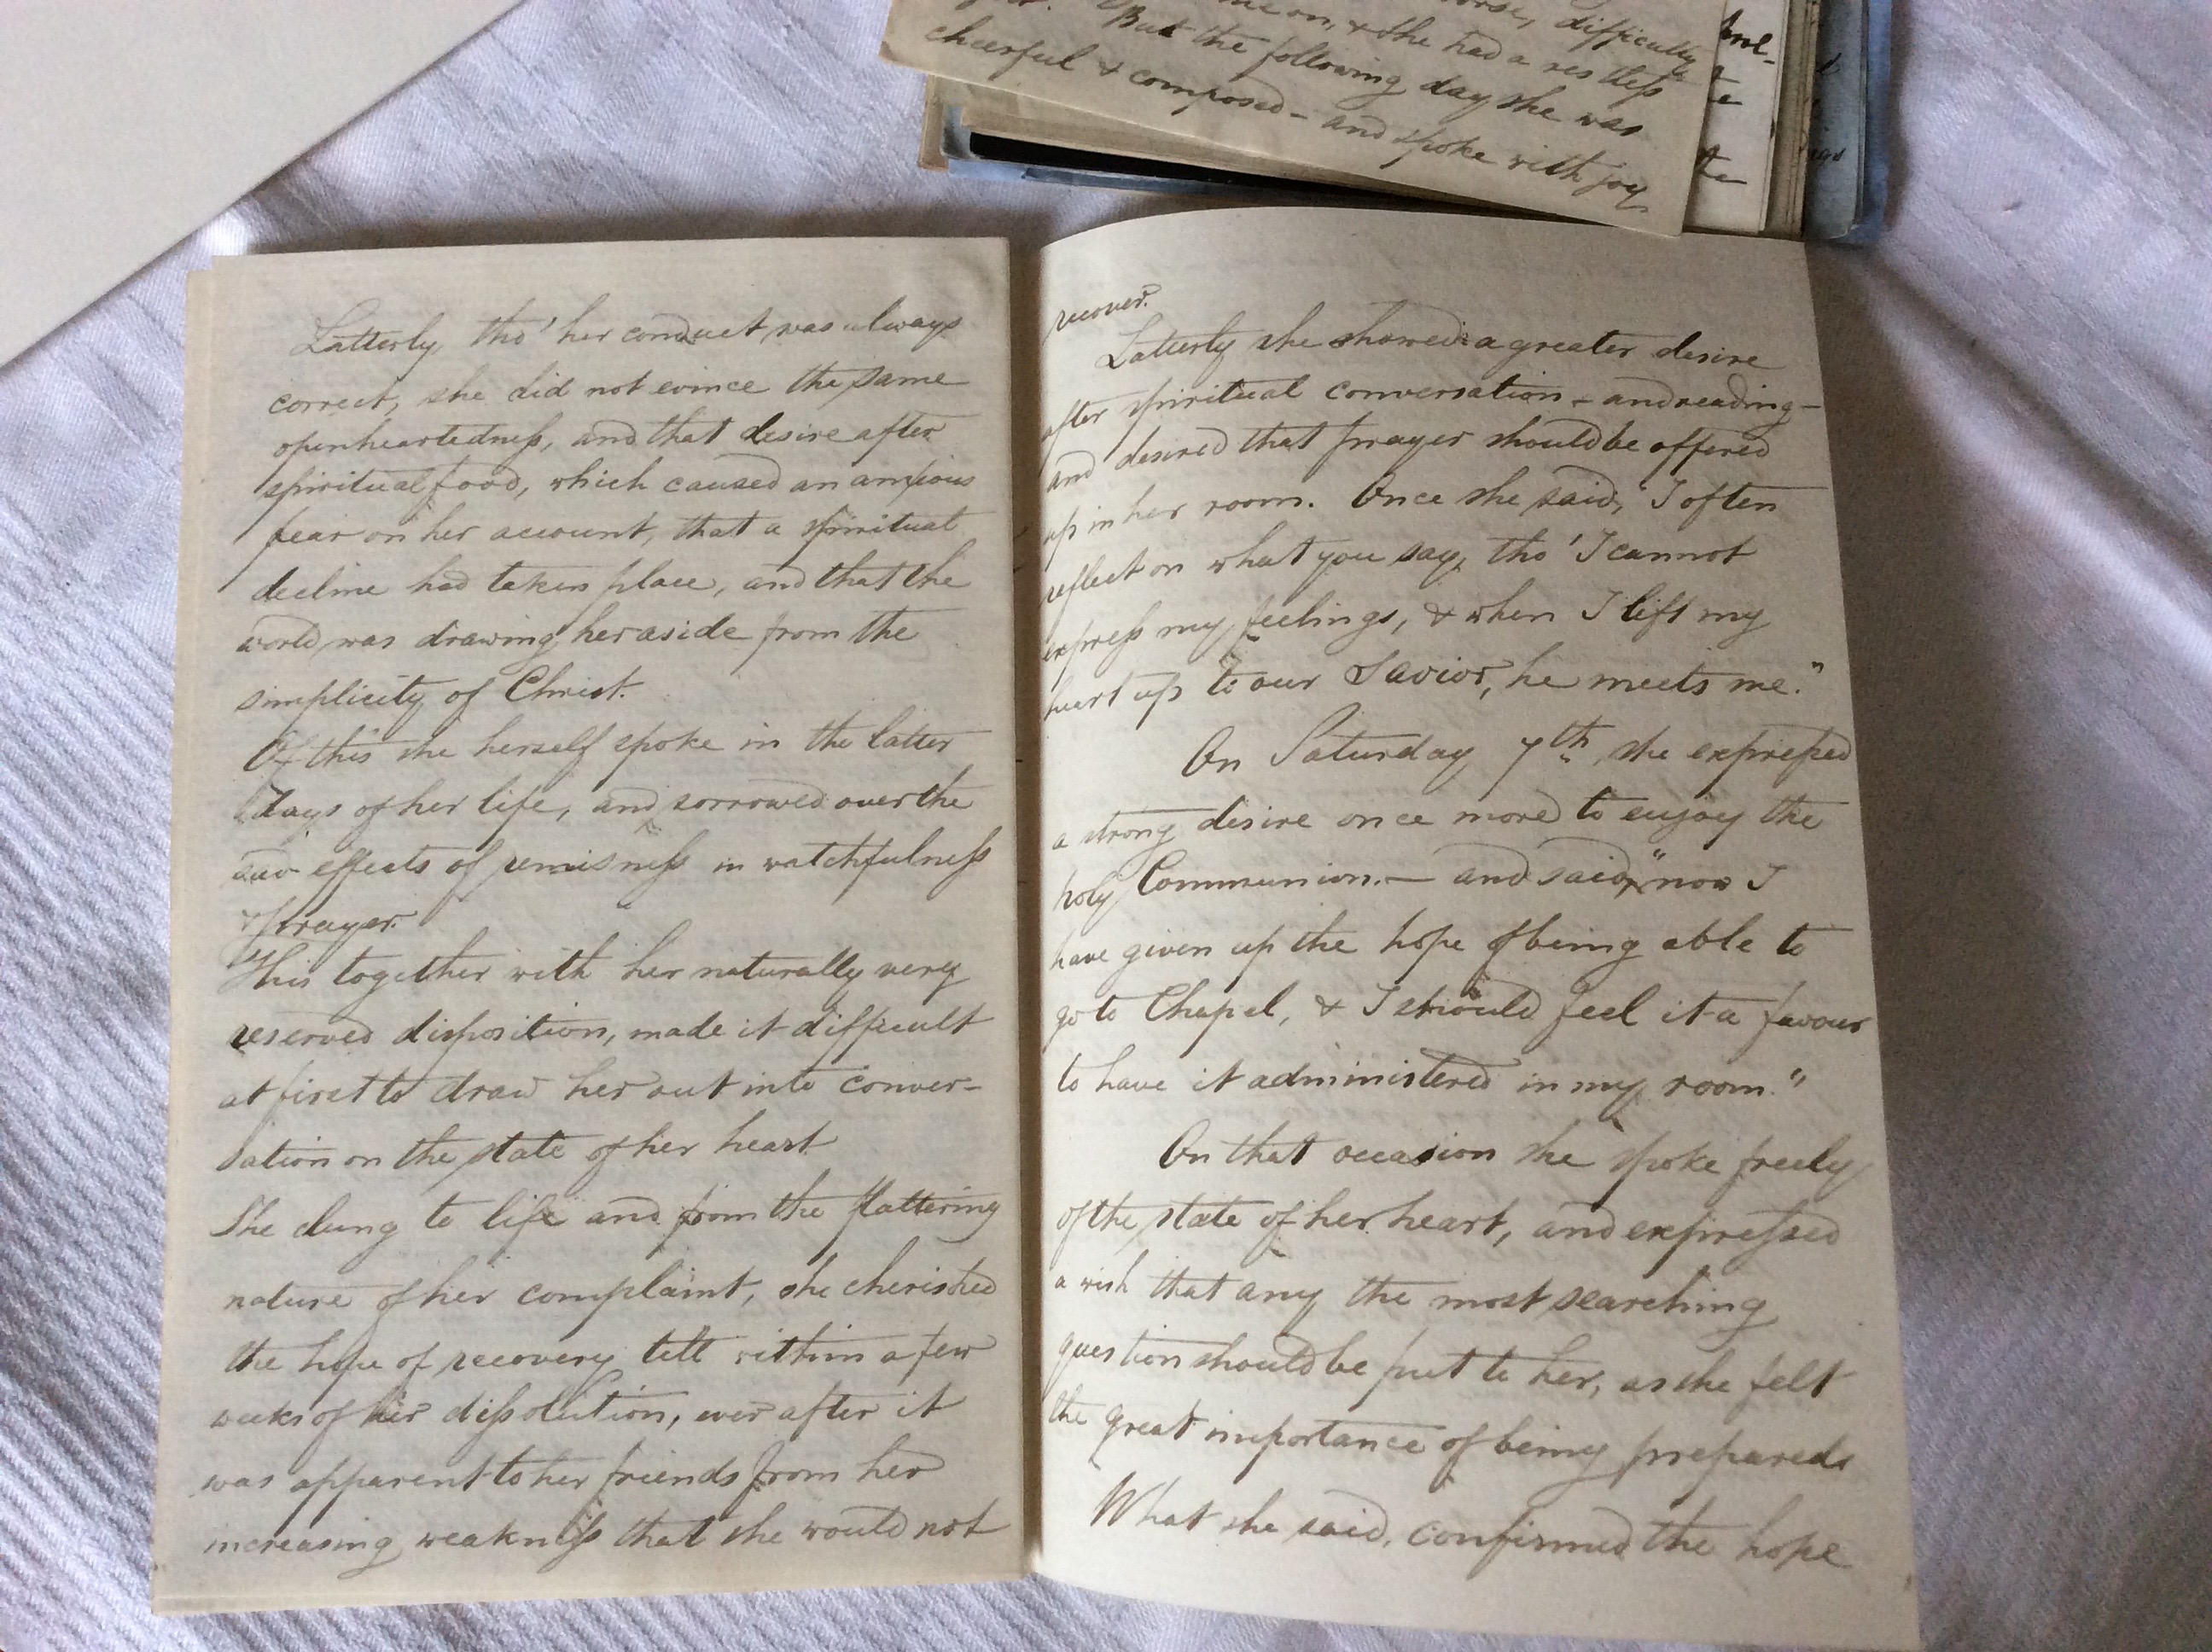 worse, difficulty
on, & she had a restless
But the following day she was
cheerful & composed – and spoke with joy
Latterly, tho' her conduct was always
correct, she did not evince the same
openheartedness, and that desire after
spiritual food, which caused an anxious
fear on her account, that a spiritual
decline had taken place, and that the
world was drawing her aside from the
simplicity of Christ.
Of this she herself spoke in the latter
days of her life, and sorrowed over the
sad effects of remisness in watchfulness
& prayer.
This together with her naturally very
reserved disposition, made it difficult
at first to draw her out into conver-
sation on the state of her heart
She clung to life and from the flattering
nature of her complaint, she cherished
the hope of recovery till within a few
weeks of her dissolution, ever after it
was apparent to her friends from her
increasing weakness that she would not
recover.
Latterly she showed a greater desire
after spiritual conversation – and reading –
and desired that prayer should be offered
up in her room. Once she said, "I often
reflect on what you say, tho' I cannot
express my feelings, & when I lift my
heart up to our Savior, he meets me."
On Saturday 7th, she expressed
a strong desire once more to enjoy the
holy Communion. — and said, "now I
have given up the hope of being able to
go to Chapel, & I should feel it a favour
to have it administered in my room."
On that occasion she spoke freely
of the state of her heart, and expressed
a wish that any the most searching
question should be put to her, as she felt
the great importance of being prepared.
What she said, confirmed the hope